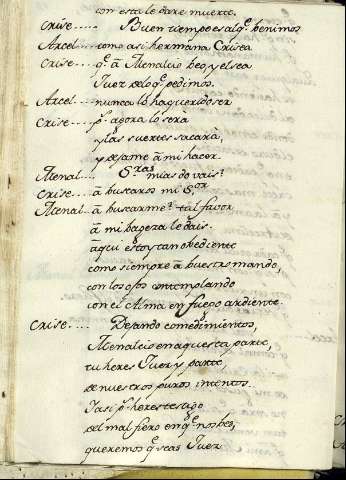 con esta le dare muerte.
Crise..... Buen tiempo es al q̃. benimos
Arcel.... como asi hermana Crisea
Crise.... q̃. â Menalcio beo, y el sea
Juez de lo q̃. pedimos.
Arcel.... nunca lo ha querido ser
Crise.... p.ͬ agora lo serà
y las suertes sacarà,
y dejame â mi hacer.
Menal.... S.ras mias do vais?
Crise.... â buscaros mi S.or
Menal... â buscarme? tal favor
â mi bageza le dais.
aqui estoy tan obediente
como siempre â buestro mando,
con los ojos contemplando
con el Alma en fuego ardiente.
Crise..... Dejando comedimientos,
Menalcio en aquesta parte,
tu heres Juez y parte
de nuestros puros intentos.
I asi p.ͬ heres testigo
del mal fiero en q̃. nos bes,
queremos q̃. seas Juez